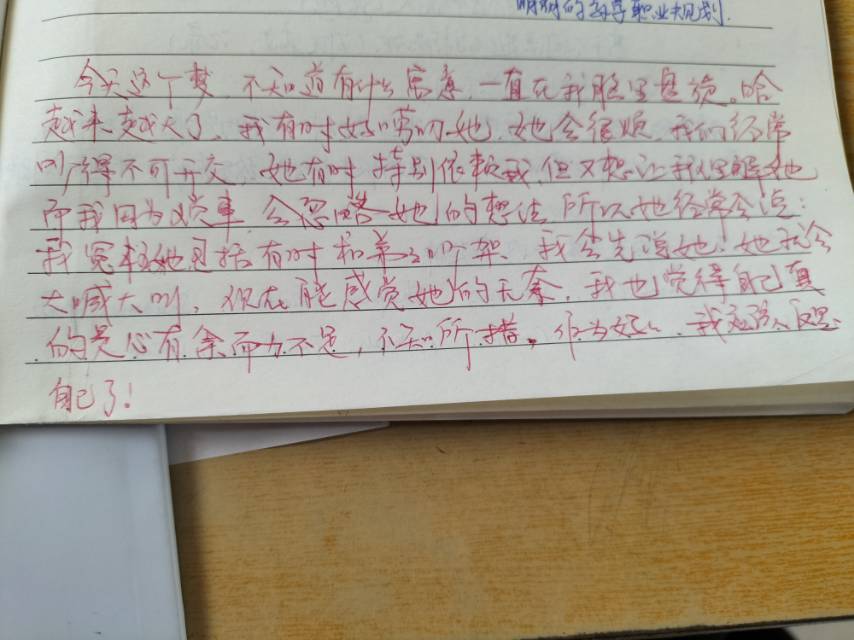 明明的教学职业规划.
今天这个梦,不知道有什么寓意,一直在我脑里盘旋。哈
越来越大了,我有时好唠叨她,她会很烦,我们经常
吵得不可开交,她有时特别依赖我,但又想让我理解她
而我因为 会忽略她的想法,所以她经常会说:
我冤枉她包括有时和弟弟吵架、我会先说她,她就会
大喊大叫,现在能感觉她的无奈,我也觉得自己真
的是心有余而力不足,不知所措。作为妈妈,我应该反思
自己了!